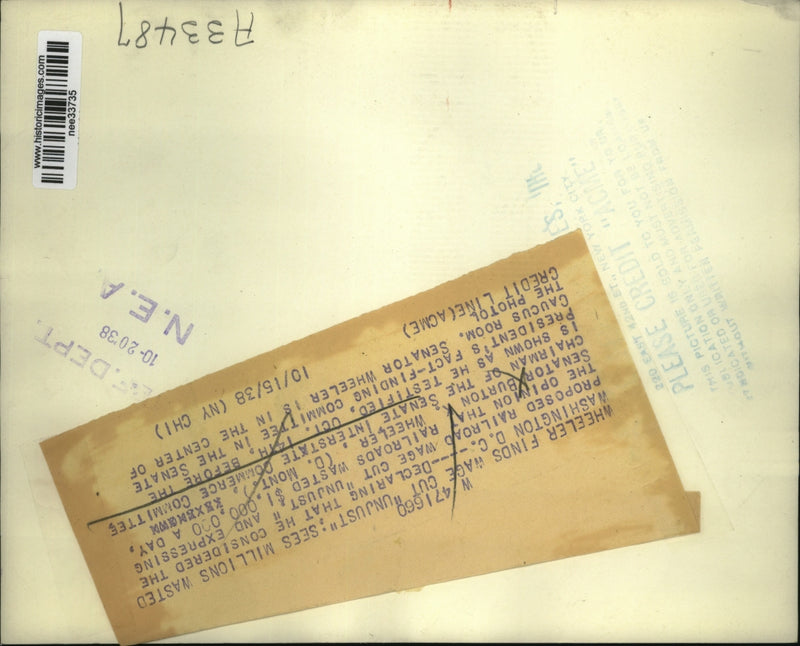 A33487
www.historicimages.com
nee33735
N.E.A.
10-20'38
REF. DEPT.
220 EAST 42ND ST., NEW YORK CITY
PLEASE CREDIT "ACME"
THIS PICTURE IS SOLD TO YOU FOR YOUR
PUBLICATION ONLY AND MUST NOT BE LOANED,
SYNDICATED OR USED FOR ADVERTISING PURPOSES
WITHOUT WRITTEN PERMISSION FROM US
W
WHEELER FINDS WAGE CUT "UNJUST";SEES MILLIONS WASTED
WASHINGTON D.C.----DECLARING THAT HE CONSIDERED THE
PROPOSED RAILROAD WAGE CUT "UNJUST" AND EXPRESSING
THE OPINION THAT RAILROADS WASTED $1,000,000 A DAY,
SENATOR BURTON WHEELER, (D. MONT.),
CHAIRMAN OF THE SENATE INTERSTATE COMMERCE COMMITTEE,
IS SHOWN AS HE TESTIFIED, OCT. 14TH, BEFORE THE
PRESIDENT'S FACT-FINDING COMMITTEE, IN THE SENATE
CAUCUS ROOM. SENATOR WHEELER IS IN THE CENTER OF
THE PHOTO.
CREDIT LINE(ACME) 10/15/38 (NY CHI)